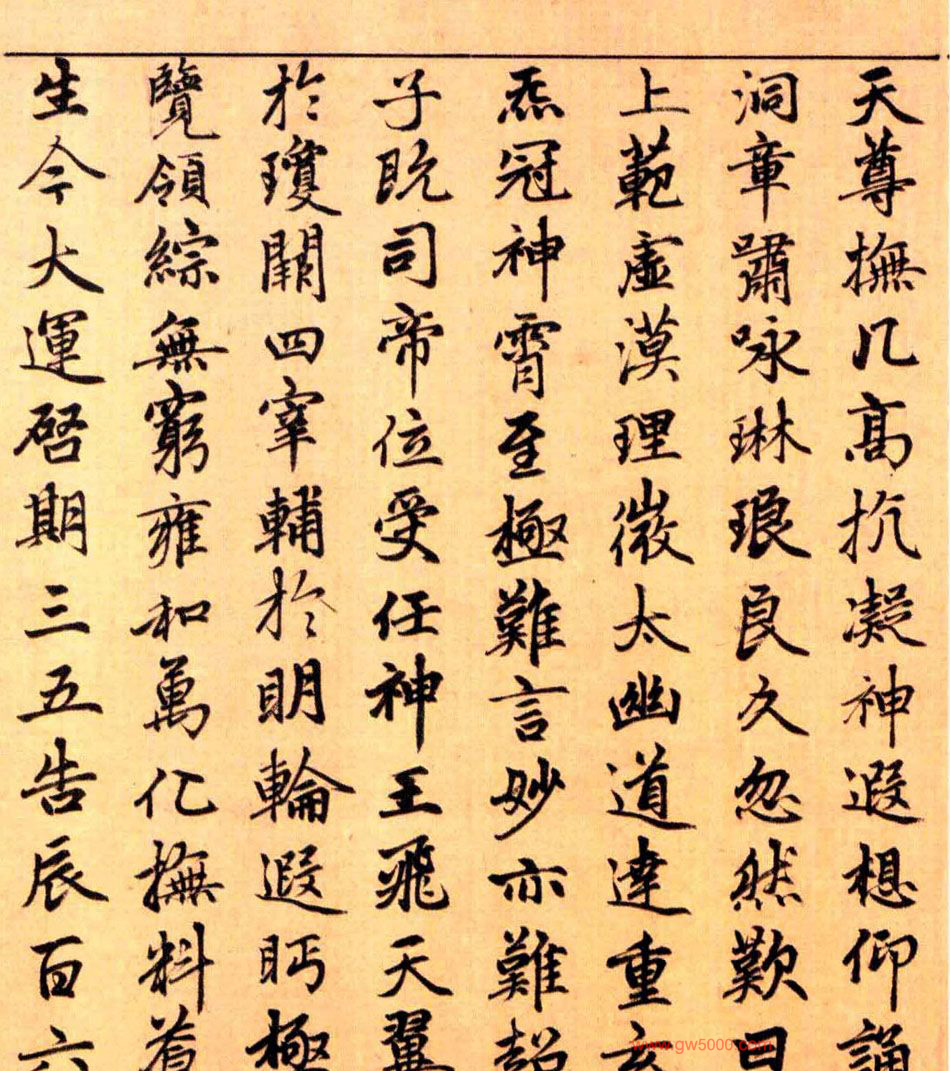 天尊撫几高抗凝神遐想仰誦
洞章嘯咏琳琅良久忽然歎曰
上範虛漠理微太幽道達重玄
炁冠神霄至極難言妙亦難超
子既司帝位受任神王飛天翼
於瓊闕四宰輔於明輪遐眄極
覽領綜無窮雍和萬化撫料蒼
生今大運啓期三五告辰百六
www.gw5000.com